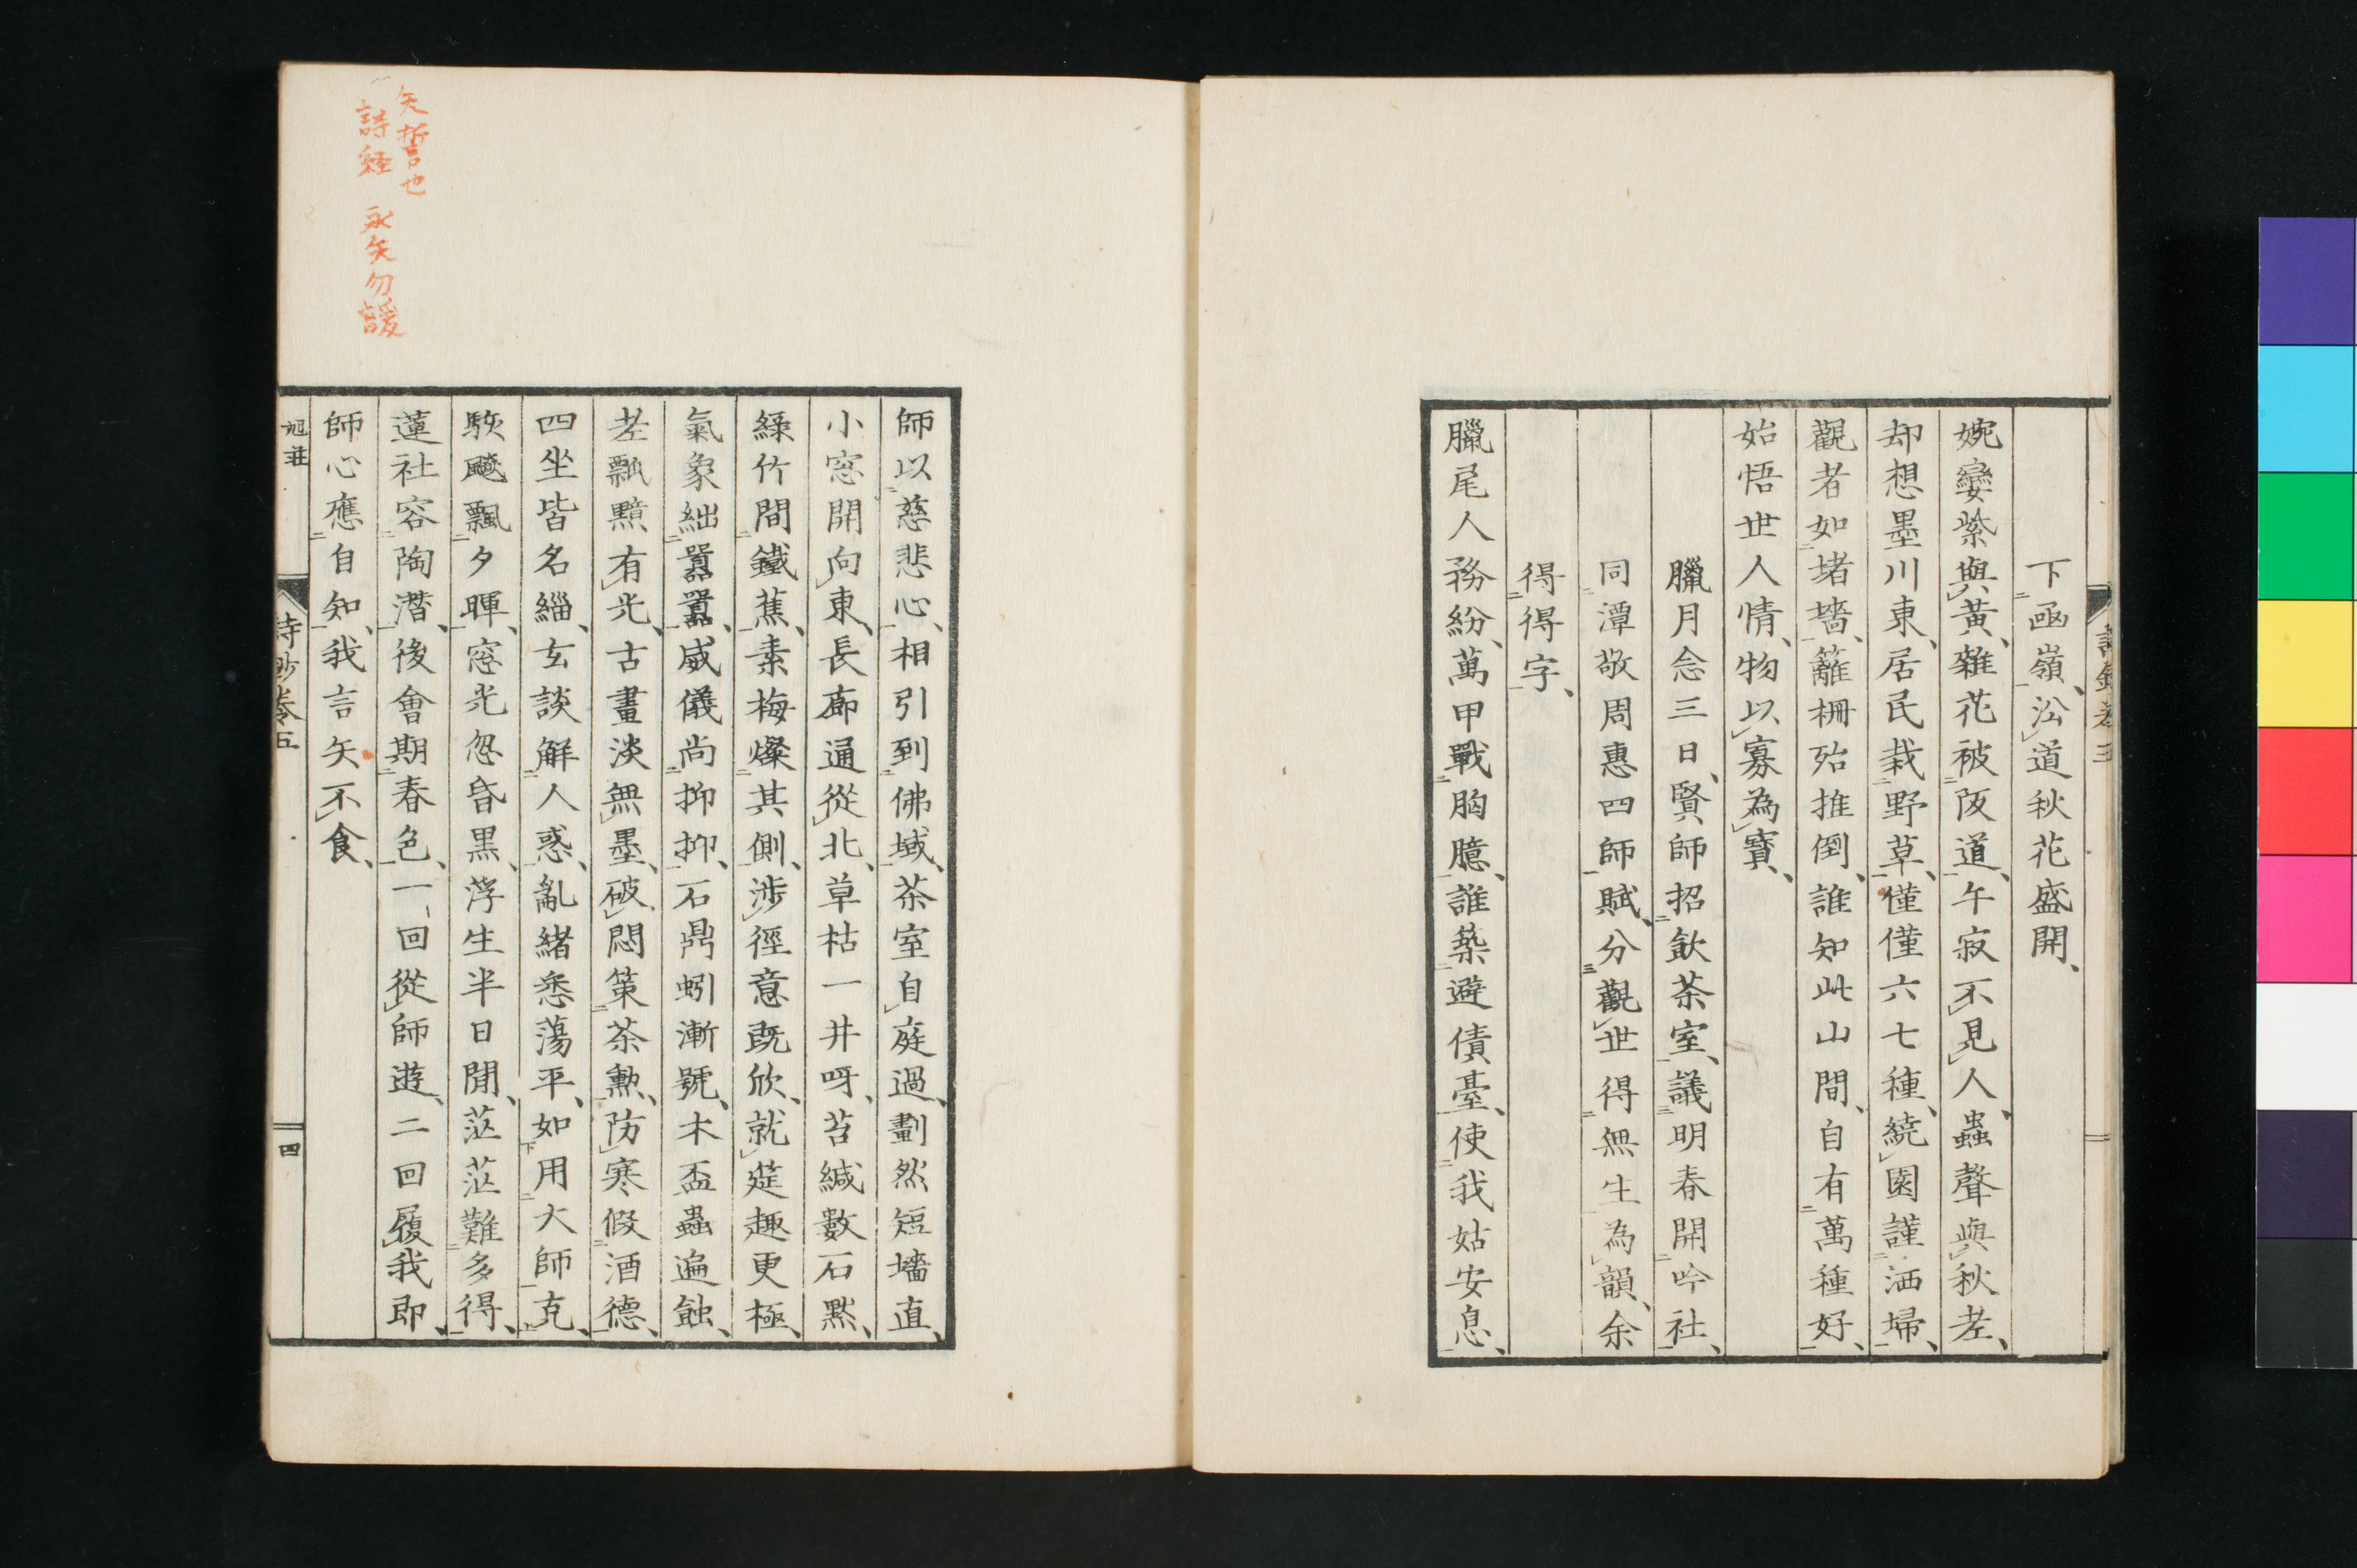 下凾嶺、㳂道秋花盛開、
婉孌紫與黃、雜花被阪道、午寂不見人、蟲聲與秋老、
却想墨川東、居民栽野草、僅僅六七種、繞園謹洒埽、
觀者如堵墻、籬柵殆推倒、誰知此山間、自有萬種好、
始悟世人情、物以寡為寶、
臘月念三日、賢師招飲茶室、議明春開吟社、
同潭敬周惠四師賦、分觀世得無生為韻、余
得得字、
臘尾人務紛、萬甲戰胸臆、誰築避債臺、使我姑安息、
師以慈悲心、相引到佛域、茶室自庭過、劃然短墻直、
小窓開向東、長廊通從北、草枯一井呀、苔緘數石黙、
綠竹間鐵蕉、素梅燦其側、涉徑意既欣、就筵趣更極、
氣象絀囂囂、威儀尚抑抑、石鼎蚓漸號、木盃蟲遍蝕、
老瓢黦有光、古畫淡無墨、破悶策茶勲、防寒假酒德、
四坐皆名緇、玄談解人惑、亂緒悉蕩平、如用大師克、
駛飈飄夕暉、窓光忽昏黒、浮生半日閒、茫茫難多得、
蓮社容陶潛、後會期春色、一回從師遊、二回履我即、
師心應自知、我言矢不食、
旭莊
詩鈔卷五
四
矢誓也
詩經 永矢勿諼